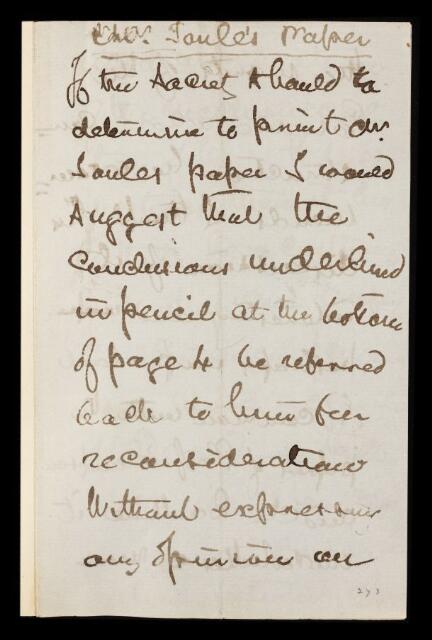 Joule's Paper
If the Society should to
determine to print Dr.
Joules paper I would
suggest that the
conclusions underlined
in pencil at the bottom
of page 4 be referred
back to him for
reconsideration
Without expressing
any opinion on
273